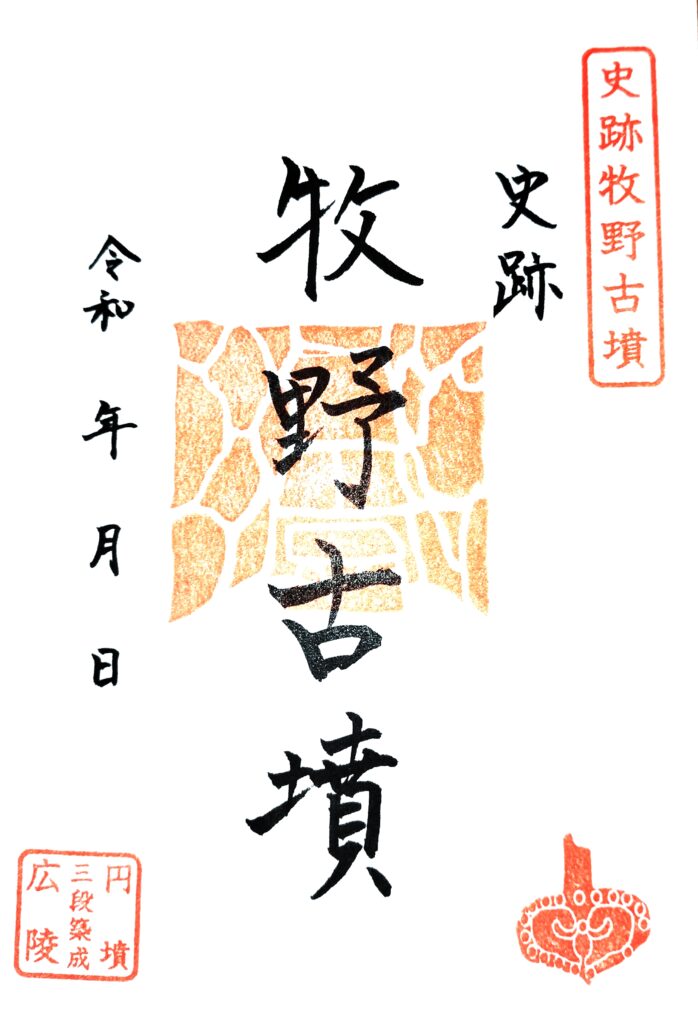 史跡牧野古墳
史跡
牧野古墳
令和 年 月 日
円墳
三段築成
広陵